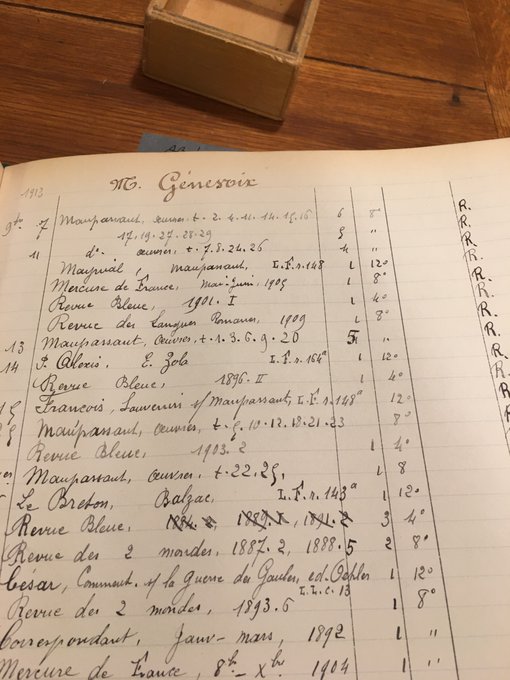 1913
M. Génevoix
9bre 7 Maupassant, œuvres. t. 2. 4. 11. 14. 15. 16 6 8° R.
17. 19. 27. 28. 29 5 " R.
11 d° œuvres, t. 7. 8. 24. 26 4 " R.
Maynial, Maupassant, L.F.r. 148 1 12° R.
Mercure de France, Mai-Juin, 1905 1 8° R.
Revue Bleue, 1901. I 1 4° R.
Revue des Langues Romanes, 1909 1 8° R.
13 Maupassant, Œuvres, t. 1. 3. 6. 9. 20 5 " R.
14 P. Alexis, E. Zola L.F.r. 164a 1 12° R.
Revue Bleue, 1896. II 1 4° R.
François, Souvenirs s/ Maupassant, L.F.r. 148a 12° R.
Maupassant, œuvres, t. 5. 10. 12. 18. 21. 23 8° R.
Revue Bleue, 1903. 2 1 4°
Maupassant, œuvres, t. 22. 25, 8
Le Breton, Balzac, L.F.r. 143a 1 12°
Revue Bleue, 1889. I, 1891. 2 3 4°
Revue des 2 mondes, 1887. 2, 1888. 5 2 8°
César, Comment. s/ la Guerre des Gaules, ed. Oehler 1 12°
L.L.c. 13
Revue des 2 mondes, 1893. 6 1 8°
Correspondant, Janv - mars, 1892 1 "
Mercure de France, 8bre - Xbre 1904 1 "